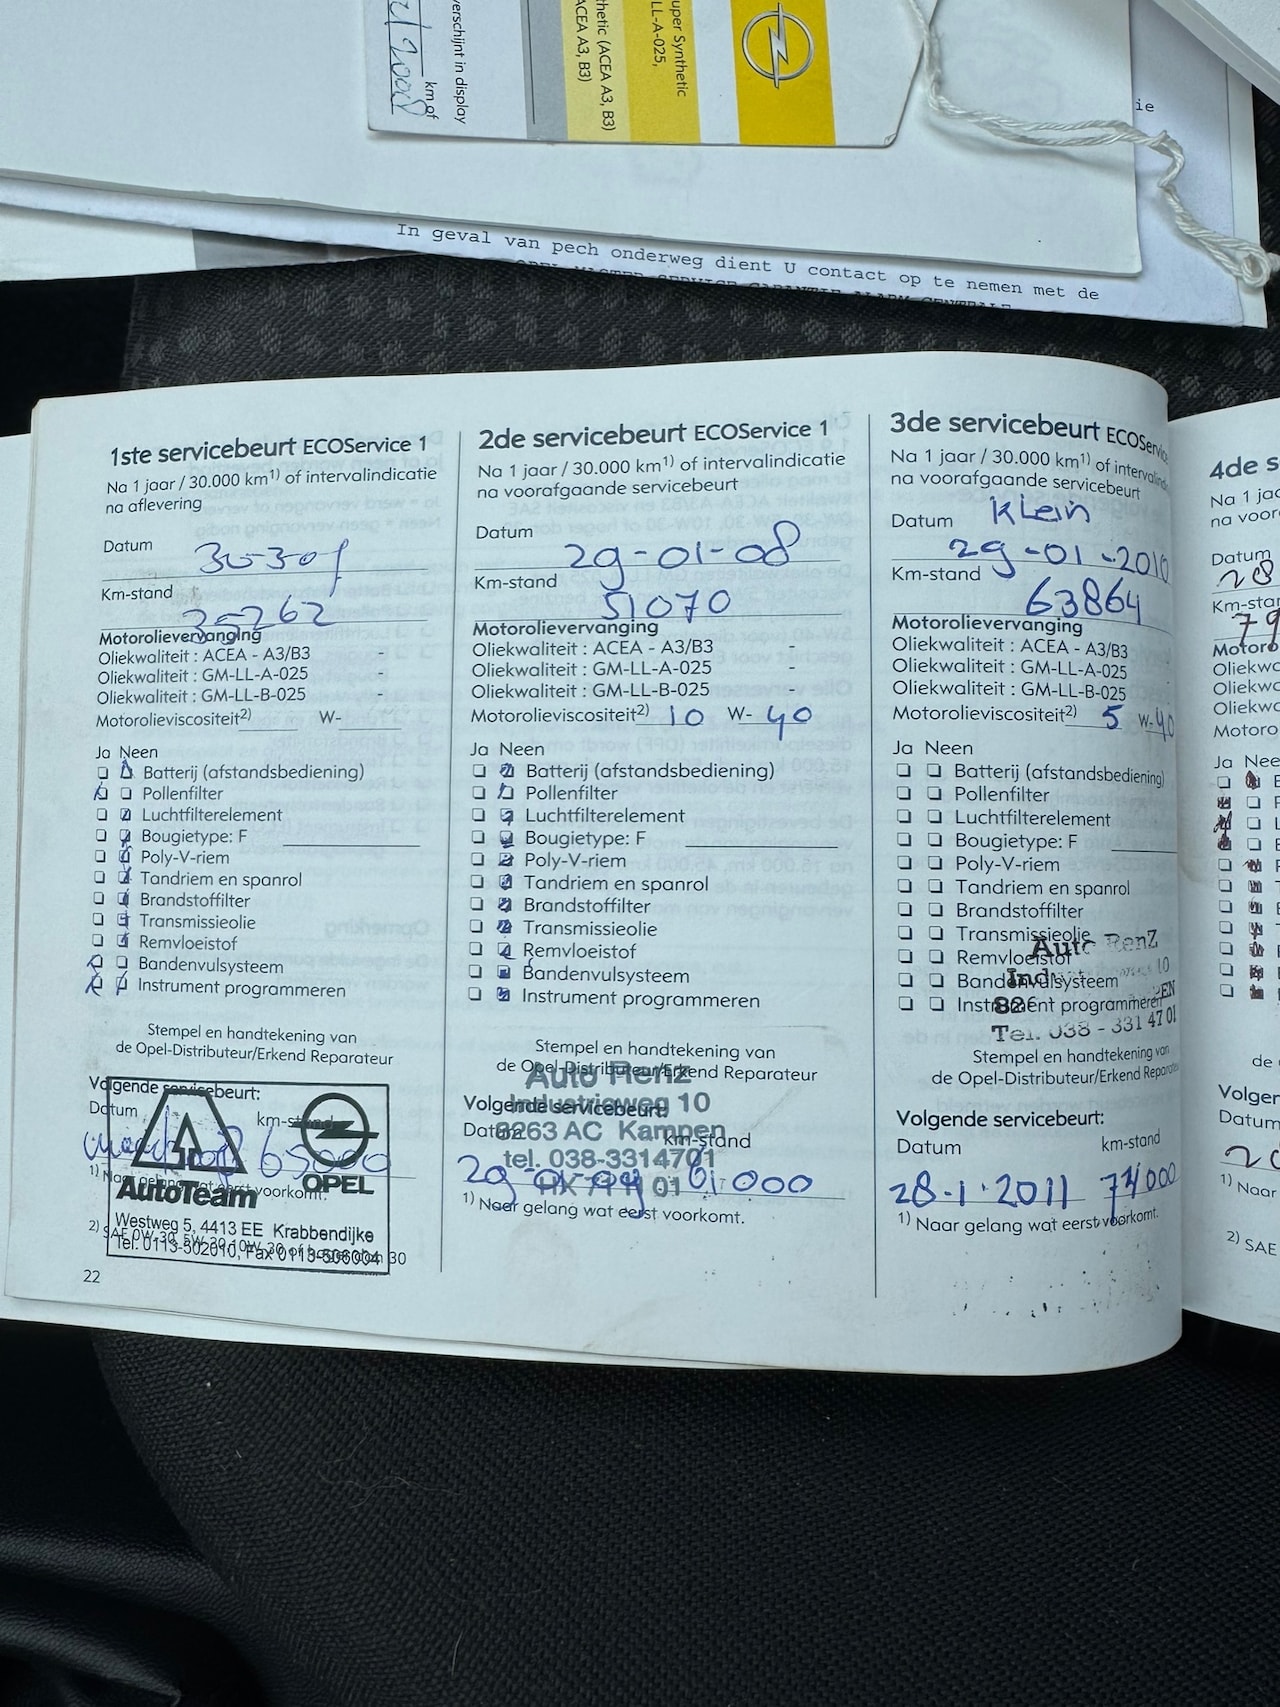 verschijnt in display
km of
uper Synthetic
LL-A-025,
thetic (ACEA A3, B3)
ACEA A3, B3)
ie
In geval van pech onderweg dient U contact op te nemen met de
1ste servicebeurt ECOService 1
Na 1 jaar / 30.000 km1) of intervalindicatie
na aflevering
Datum
Km-stand
35262
Motorolievervanging
Oliekwaliteit : ACEA - A3/B3 -
Oliekwaliteit : GM-LL-A-025
Oliekwaliteit : GM-LL-B-025
Motorolieviscositeit2) W-
Ja Neen
Batterij (afstandsbediening)
Pollenfilter
Luchtfilterelement
Bougietype: F
Poly-V-riem
Tandriem en spanrol
Brandstoffilter
Transmissieolie
Remvloeistof
Bandenvulsysteem
Instrument programmeren
Stempel en handtekening van
de Opel-Distributeur/Erkend Reparateur
Volgende servicebeurt:
Datum km-stand
65000
1) Naar gelang wat eerst voorkomt.
AutoTeam OPEL
Westweg 5, 4413 EE Krabbendijke
Tel. 0113-502010, Fax 0113-506004
22
2de servicebeurt ECOService 1
Na 1 jaar / 30.000 km1) of intervalindicatie
na voorafgaande servicebeurt
Datum
29-01-08
Km-stand
51070
Motorolievervanging
Oliekwaliteit : ACEA - A3/B3 -
Oliekwaliteit : GM-LL-A-025
Oliekwaliteit : GM-LL-B-025 -
Motorolieviscositeit2) 10 W- 40
Ja Neen
Batterij (afstandsbediening)
Pollenfilter
Luchtfilterelement
Bougietype: F
Poly-V-riem
Tandriem en spanrol
Brandstoffilter
Transmissieolie
Remvloeistof
Bandenvulsysteem
Instrument programmeren
Stempel en handtekening van
de Opel-Distributeur/Erkend Reparateur
Auto Renz
Industrieweg 10
8263 AC Kampen
tel. 038-3314701
Volgende servicebeurt:
Datum km-stand
29-01-09 61000
1) Naar gelang wat eerst voorkomt.
3de servicebeurt ECOService
Na 1 jaar / 30.000 km1) of intervalindicatie
na voorafgaande servicebeurt
Klein
Datum
29-01-2010
Km-stand
63864
Motorolievervanging
Oliekwaliteit : ACEA - A3/B3
Oliekwaliteit : GM-LL-A-025
Oliekwaliteit : GM-LL-B-025
Motorolieviscositeit2) 5 W- 40
Ja Neen
Batterij (afstandsbediening)
Pollenfilter
Luchtfilterelement
Bougietype: F
Poly-V-riem
Tandriem en spanrol
Brandstoffilter
Transmissieolie
Remvloeistof
Bandenvulsysteem
Instrument programmeren
Auto Renz
Tel. 038 - 331 47 01
Stempel en handtekening van
de Opel-Distributeur/Erkend Reparateur
Volgende servicebeurt:
Datum km-stand
28-1-2011
1) Naar gelang wat eerst voorkomt.
4de s
Na 1 jaa
na voor
Datum
28
Km-star
79
Motoro
Oliekwa
Oliekwa
Oliekwa
Motoro
Ja Nee
de
Volger
Datum
20
1) Naar
2) SAE